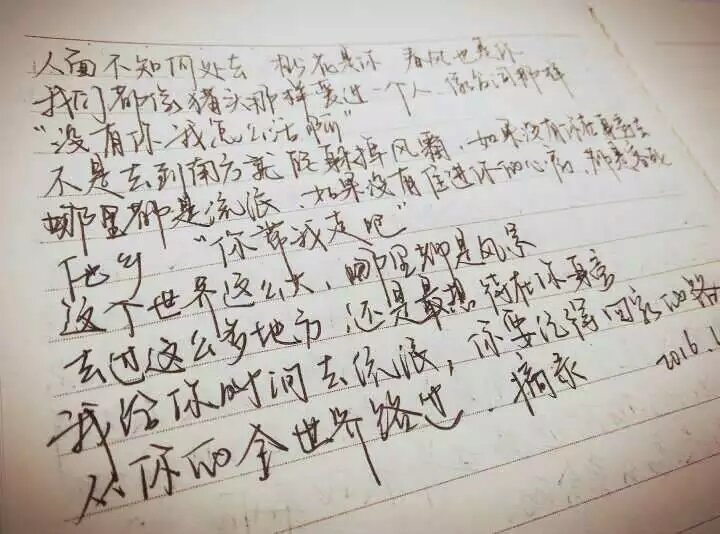 人面不知何处去 桃花是你 春风也是你
我们都像猪头那样爱过一个人、像台词那样
“没有你我怎么活啊”
不是去到南方就能躲掉风霜、如果没有你在身旁去
哪里都是流浪、如果没有住进你的心房、都是客死
他乡 “你带我走吧”
这个世界这么大、哪里都是风景
去过这么多地方 还是最想待在你身旁
我给你时间去流浪，你要记得回家的路
从你的全世界路过、摘录 2016.1